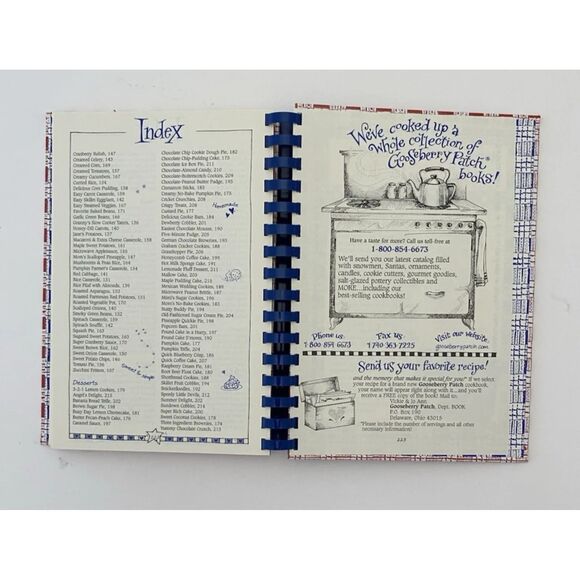 Index
Cranberry Relish, 147
Creamed Celery, 143
Creamed Corn, 169
Creamed Tomatoes, 137
Creamy Cucumbers, 167
Curried Rice, 134
Delicious Corn Pudding, 138
Easy Carrot Casserole, 159
Easy Skillet Eggplant, 142
Easy Steamed Veggies, 167
Favorite Baked Beans, 171
Garlic Green Beans, 166
Granny's Slow Cooker Taters, 136
Honey-Dill Carrots, 140
Jane's Potatoes, 137
Macaroni & Extra Cheese Casserole, 158
Maple Sweet Potatoes, 161
Microwave Applesauce, 151
Mom's Scalloped Pineapple, 147
Mushrooms & Peas Rice, 164
Pumpkin Farmer's Casserole, 134
Red Cabbage, 141
Rice Casserole, 131
Rice Pilaf with Almonds, 139
Roasted Asparagus, 135
Roasted Parmesan Red Potatoes, 151
Roasted Vegetable Pie, 170
Scalloped Onions, 140
Smoky Green Beans, 132
Spinach Casserole, 139
Spinach Souffle, 142
Squash Pie, 163
Sugared Sweet Potatoes, 163
Super Cranberry Sauce, 170
Sweet Brown Rice, 162
Sweet Onion Casserole, 150
Sweet Potato Chips, 146
Tomato Pie, 156
Zucchini Fritters, 149
Desserts
3-2-1 Lemon Cookies, 179
Angel's Delight, 215
Banana Bread Trifle, 202
Brown Sugar Pie, 198
Busy Day Lemon Cheesecake, 181
Butter Pecan-Peach Cake, 176
Caramel Sauce, 197
Chocolate Chip Cookie Dough Pie, 182
Chocolate Chip-Pudding Cake, 173
Chocolate Ice Box Pie, 211
Chocolate-Almond Candy, 210
Chocolate-Butterscotch Cookies, 209
Chocolate-Peanut Butter Fudge, 195
Cinnamon Sticks, 183
Creamy Apple Pie, 175
Cricket Crunchies, 208
Crispy Treats, 208
Custard Pie, 177
Delicious Cookie Bars, 184
Dewberry Cobbler, 191
Easiest Chocolate Mousse, 190
Five-Minute Fudge, 205
German Chocolate Brownies, 193
Graham Cracker Cookies, 188
Grasshopper Pie, 209
Honeycomb Coffee Cake, 195
Hot Milk Sponge Cake, 191
Lemonade Fluff Dessert, 211
Mallow Cake, 203
Maple Pudding Cake, 213
Mexican Wedding Cookies, 189
Microwave Peanut Brittle, 187
Mimi's Sugar Cookies, 196
Mom's No-Bake Cookies, 185
Muzzy Buddy Pie, 194
Old-Fashioned Sugar Cream Pie, 204
Pineapple Quickie Pie, 194
Popcorn Bars, 201
Pound Cake in a Hurry, 197
Pound Cake S'mores, 190
Pumpkin Cake, 177
Pumpkin Trifle, 214
Quick Blueberry Crisp, 186
Quick Coffee Cake, 207
Raspberry Cream Pie, 181
Root Beer Float Cake, 180
Homemade
Sweet & Simple
Skillet Fruit Cobbler, 193
Snickerdoodles, 192
Speedy Little Devils, 212
Summer Delight, 202
Sundown Cobbler, 214
Super Rich Cake, 200
Sweet Coconut Cookies, 178
Three Ingredient Brownies, 174
Yummy Chocolate Crunch, 213
We've cooked up a
whole collection of
Gooseberry Patch®
books!
Have a taste for more? Call us toll-free at
1-800-854-6673
We'll send you our latest catalog filled
with snowmen, Santas, ornaments,
candles, cookie cutters, gourmet goodies,
salt-glazed pottery collectibles and
MORE...including our
best-selling cookbooks!
Phone us:
1·800·854·6673
Fax us:
1·740·363·7225
Visit our Website:
gooseberrypatch.com
Send us your favorite recipe!
and the memory that makes it special for you!* If we select
your recipe for a brand new Gooseberry Patch cookbook,
your name will appear right along with it...and you'll
receive a FREE copy of the book! Mail to:
Vickie & Jo Ann
Gooseberry Patch, Dept. BOOK
P.O. Box 190
Delaware, Ohio 43015
*Please include the number of servings and all other
necessary information!
223